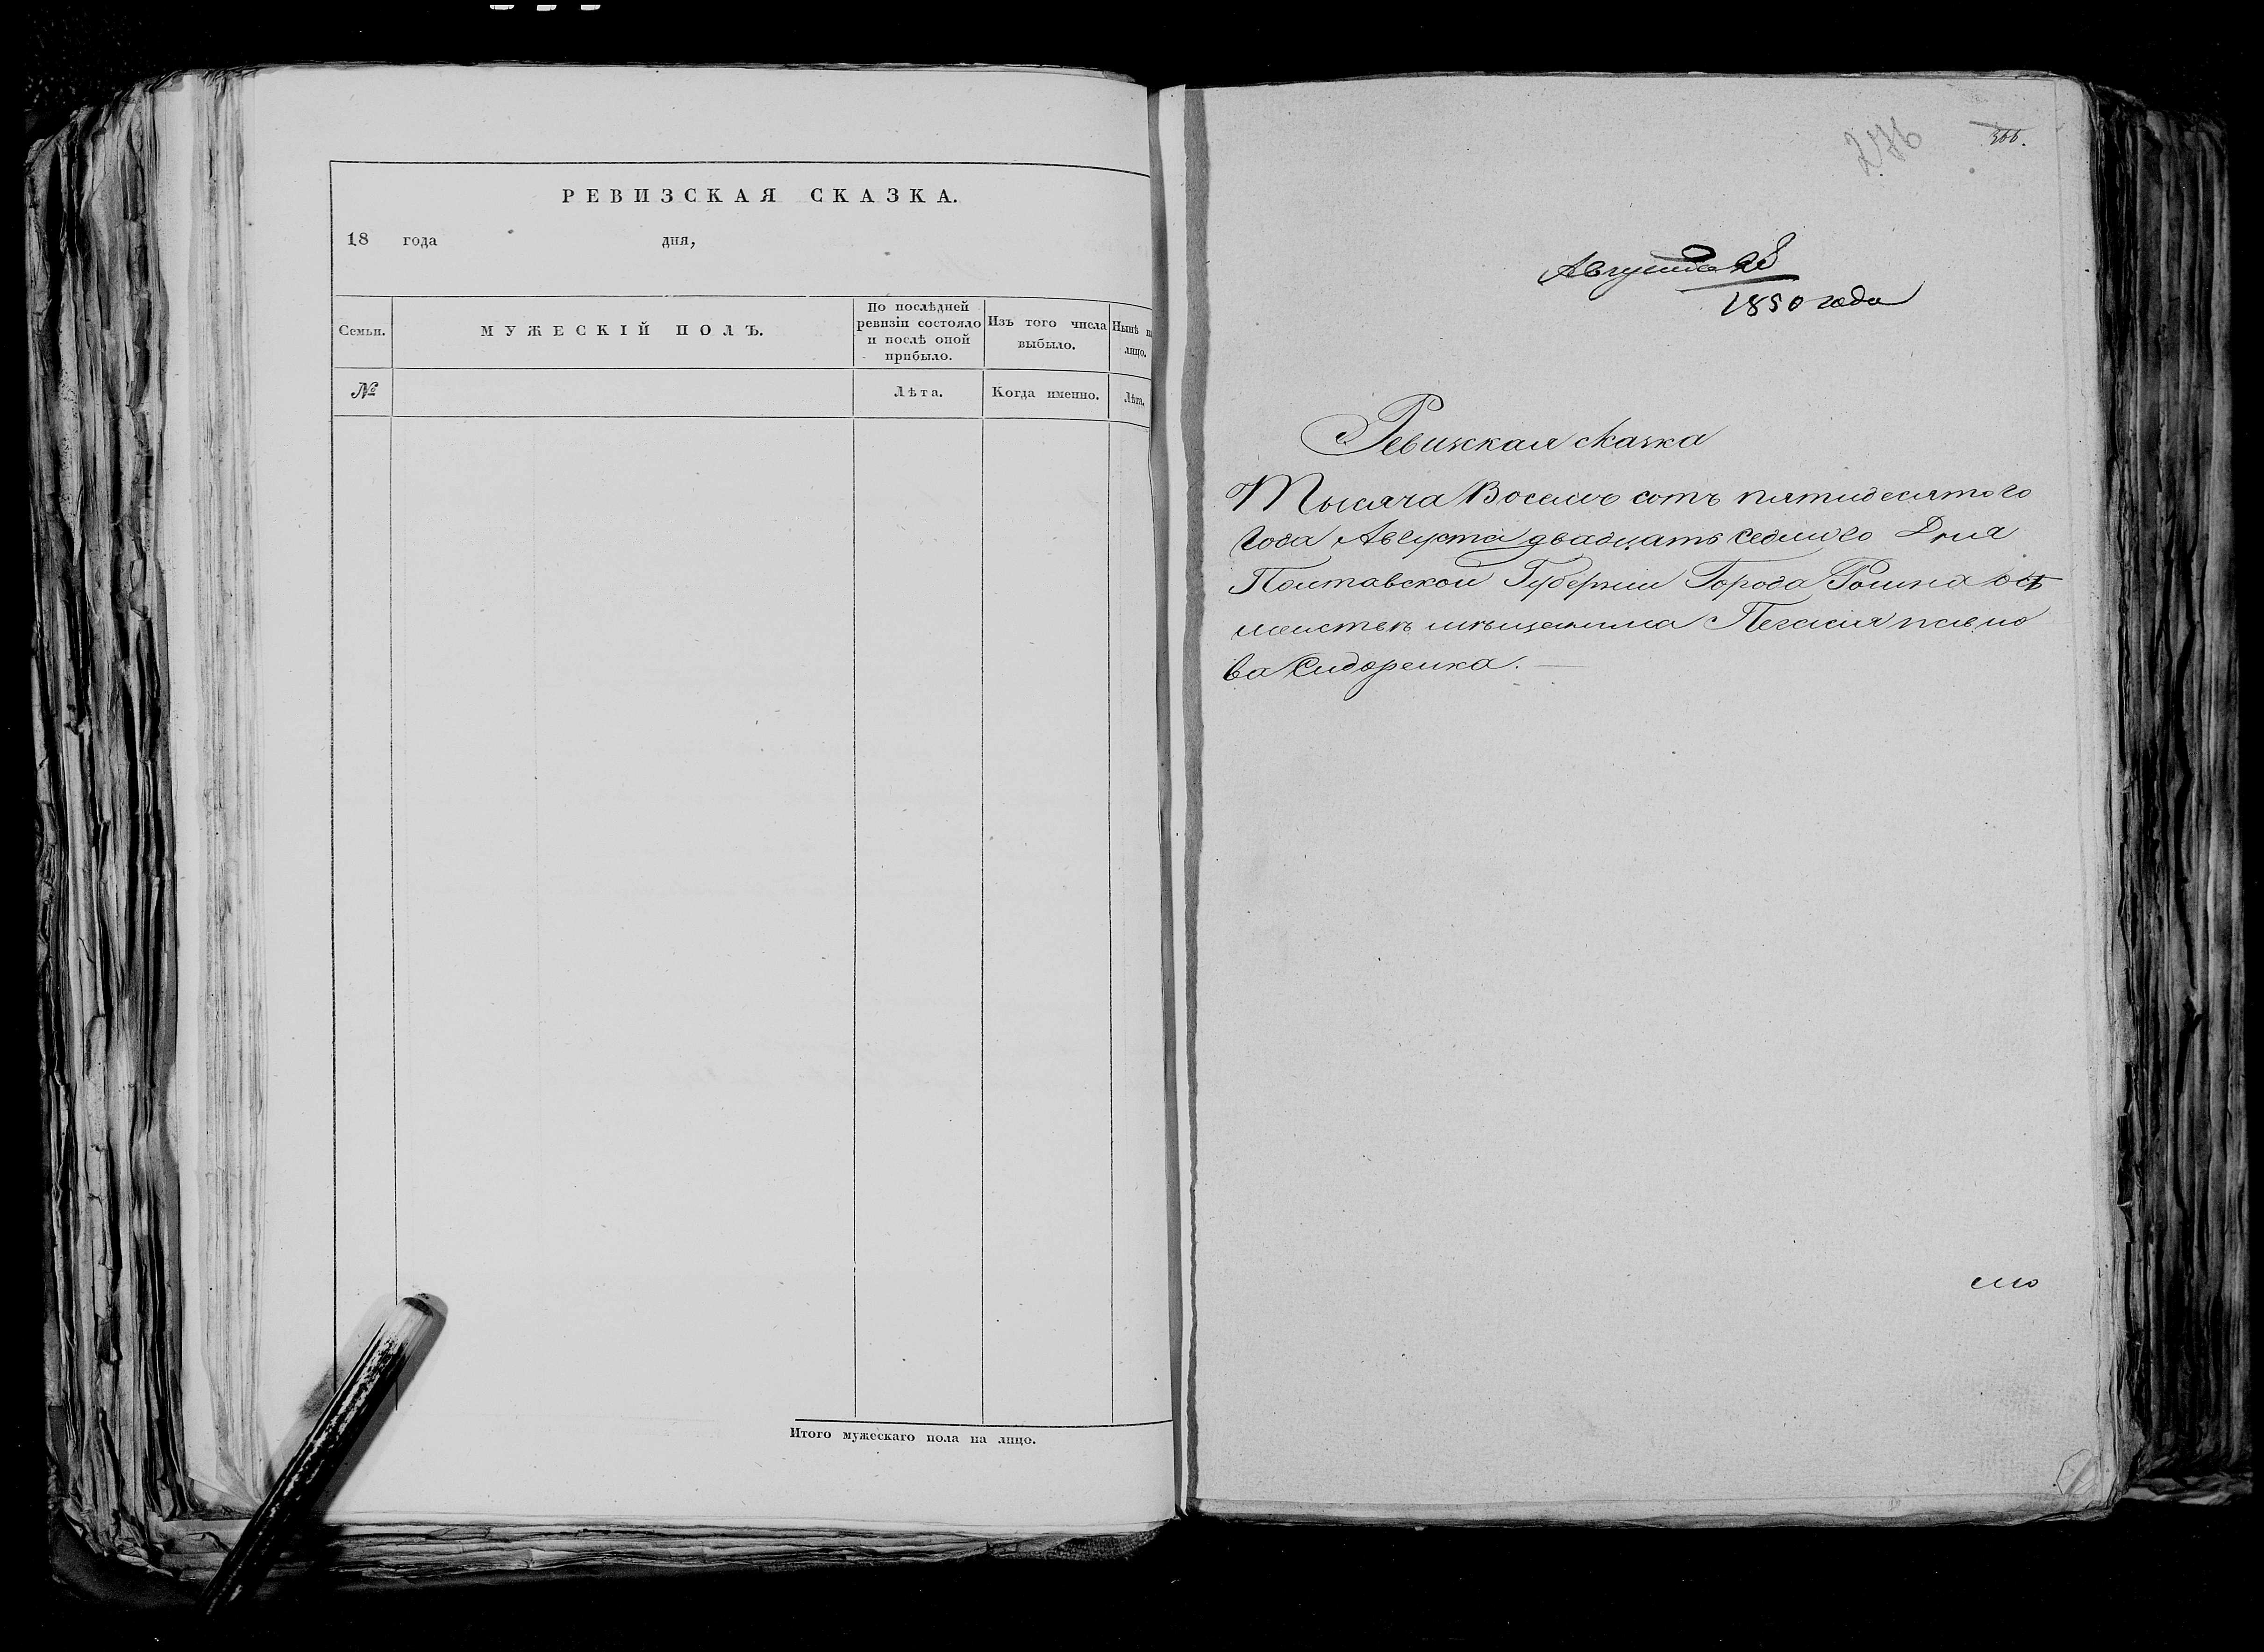 РЕВИЗСКАЯ СКАЗКА.
18 года дня,
Семьи.
МУЖЕСКІЙ ПОЛЪ.
По послѣдней
ревизіи состояло
и послѣ оной
прибыло.
Изъ того числа
выбыло.
Нынѣ
лицо.
№
Лѣта.
Когда именно.
Лѣта.
Итого мужескаго пола на лицо.
276
366.
Августа 28
1850 года
Ревизская сказка
Тысяча Восемь сотъ пятидесятого
Года Августа двадцать седмого Дня
Полтавской Губерніи Города Ромна о
мѣщанина
ва Сидоренка.